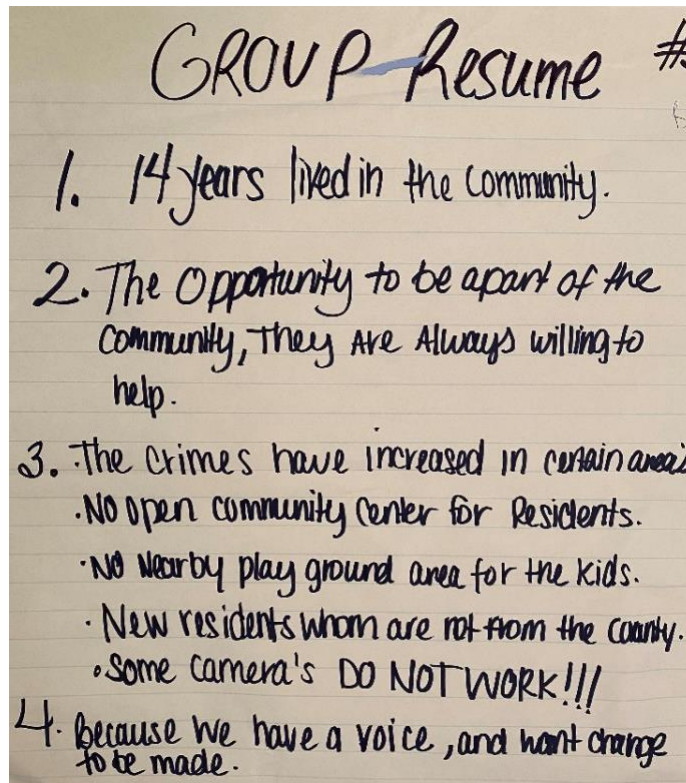 GROUP Resume
1. 14 years lived in the Community.
2. The Opportunity to be apart of the
Community, They Are Always willing to
help.
3. The crimes have increased in certain area's
· No open community center for Residents.
· No Nearby play ground area for the kids.
· New residents whom are not from the county.
· Some Camera's DO NOT WORK!!!
4. Because we have a voice, and want change
to be made.